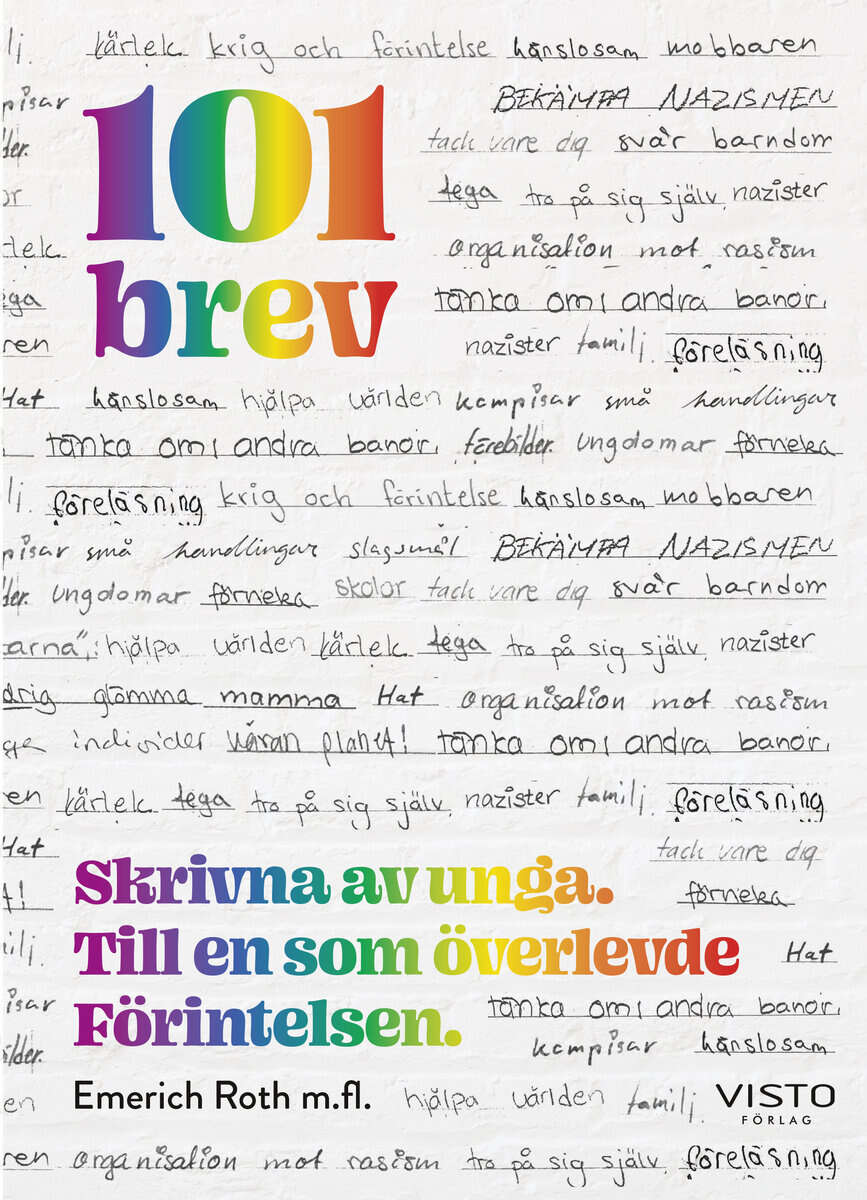 lj. kärlek krig och förintelse hänslosam mobbaren
pisar BEKÄMPA NAZISMEN
der. tack vare dig svår barndom
or fega tro på sig själv nazister
ärlek organisation mot rasism
ega tänka om andra banor.
ren nazister familj. föreläsning
101
brev
Hat hänslosam hjälpa världen kompisar små handlingar
. tänka om andra banor. förebilder. ungdomar förneka
lj. föreläsning krig och förintelse hänslosam mobbaren
pisar små handlingar slagsmål BEKÄMPA NAZISMEN
der. ungdomar förneka skolor tack vare dig svår barndom
arna", : hjälpa världen kärlek fega tro på sig själv nazister
drig glömma mamma Hat organisation mot rasism
individer våran planet! tänka om andra banor.
en kärlek fega tro på sig själv nazister familj. föreläsning
Hat tack vare dig
Skrivna av unga.
t! förneka
Till en som överlevde
ilj. Hat
Förintelsen.
pisar tänka om andra banor.
bilder. kompisar hänslosam
Emerich Roth m.fl.
en hjälpa världen familj.
VISTO
FÖRLAG
ren organisation mot rasism tro på sig själv föreläsning